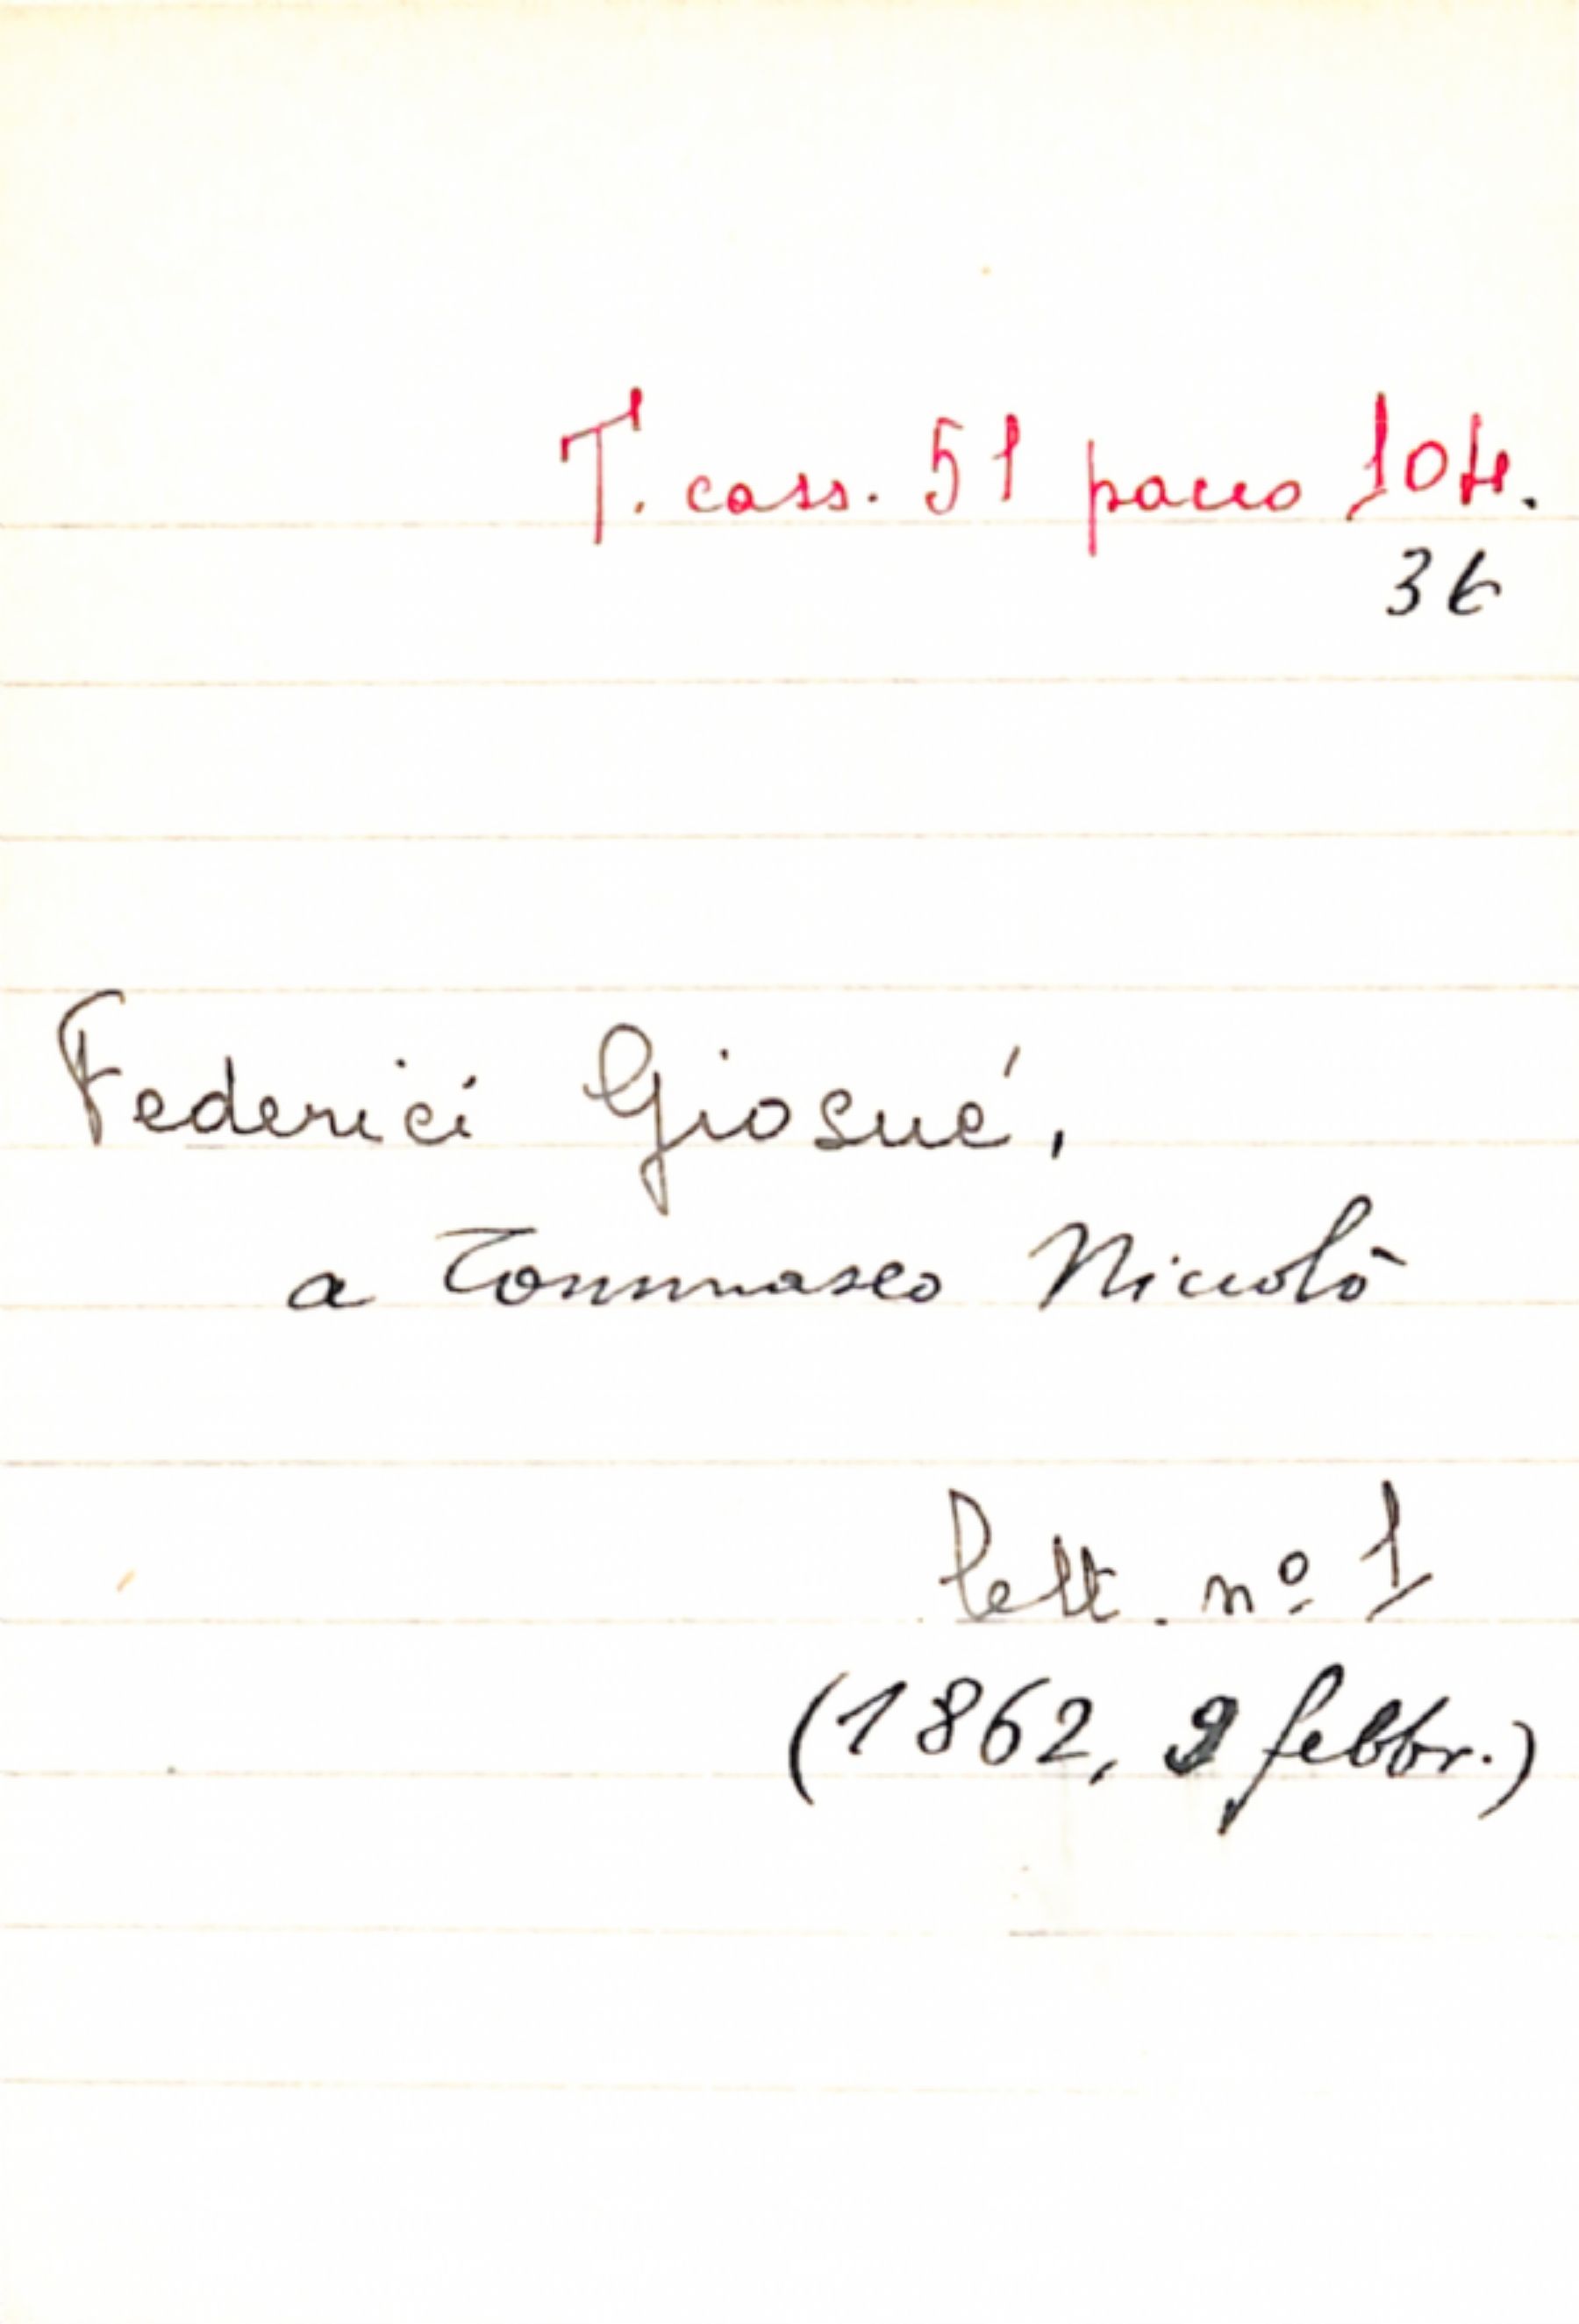 T. cass. 51 pacco 104.
36
Federici Giosué,
a Tommaseo Niccolò
lett. nº 1
(1862, 9 febbr.)